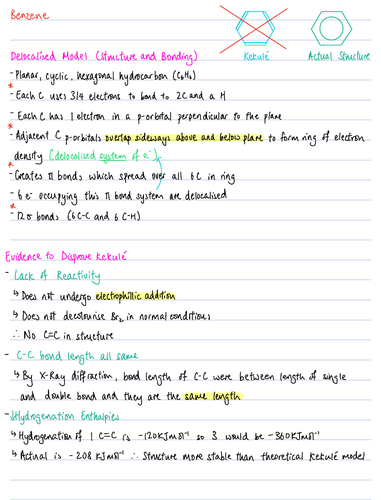 Benzene
Delocalised Model (Structure and Bonding)
Kekulé
Actual Structure
- Planar, cyclic, hexagonal hydrocarbon (C₆H₆)
* - Each C uses 3/4 electrons to bond to 2C and a H
- Each C has 1 electron in a p-orbital perpendicular to the plane
* - Adjacent C p-orbitals overlap sideways above and below plane to form ring of electron
density (delocalised system of e⁻)
* - Creates π bonds which spread over all 6C in ring
- 6 e⁻ occupying this π bond system are delocalised
* - 12 σ bonds (6 C-C and 6 C-H)
Evidence to Disprove Kekulé
- Lack of Reactivity
↳ Does not undergo electrophillic addition
↳ Does not decolourise Br₂ in normal conditions
∴ No C=C in structure
- C-C bond length all same
↳ By X-Ray diffraction, bond length of C-C were between length of single
and double bond and they are the same length
- Hydrogenation Enthalpies
↳ Hydrogenation of 1 C=C is -120KJmol⁻¹ so 3 would be -360KJmol⁻¹
↳ Actual is -208 KJmol⁻¹ ∴ Structure more stable than theoretical Kekulé model